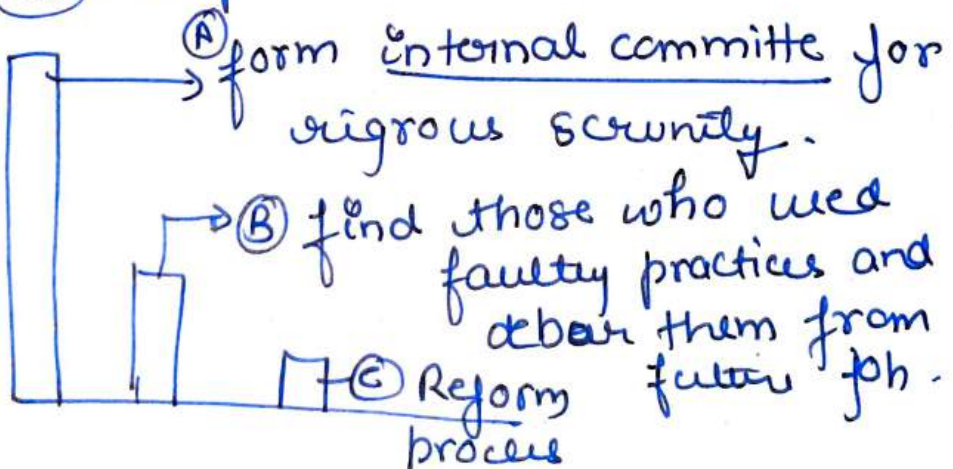 Ⓐ form internal committe for
rigrous scrunity.
Ⓑ find those who used
faulty practices and
debar them from
future job.
Ⓒ Reform
process